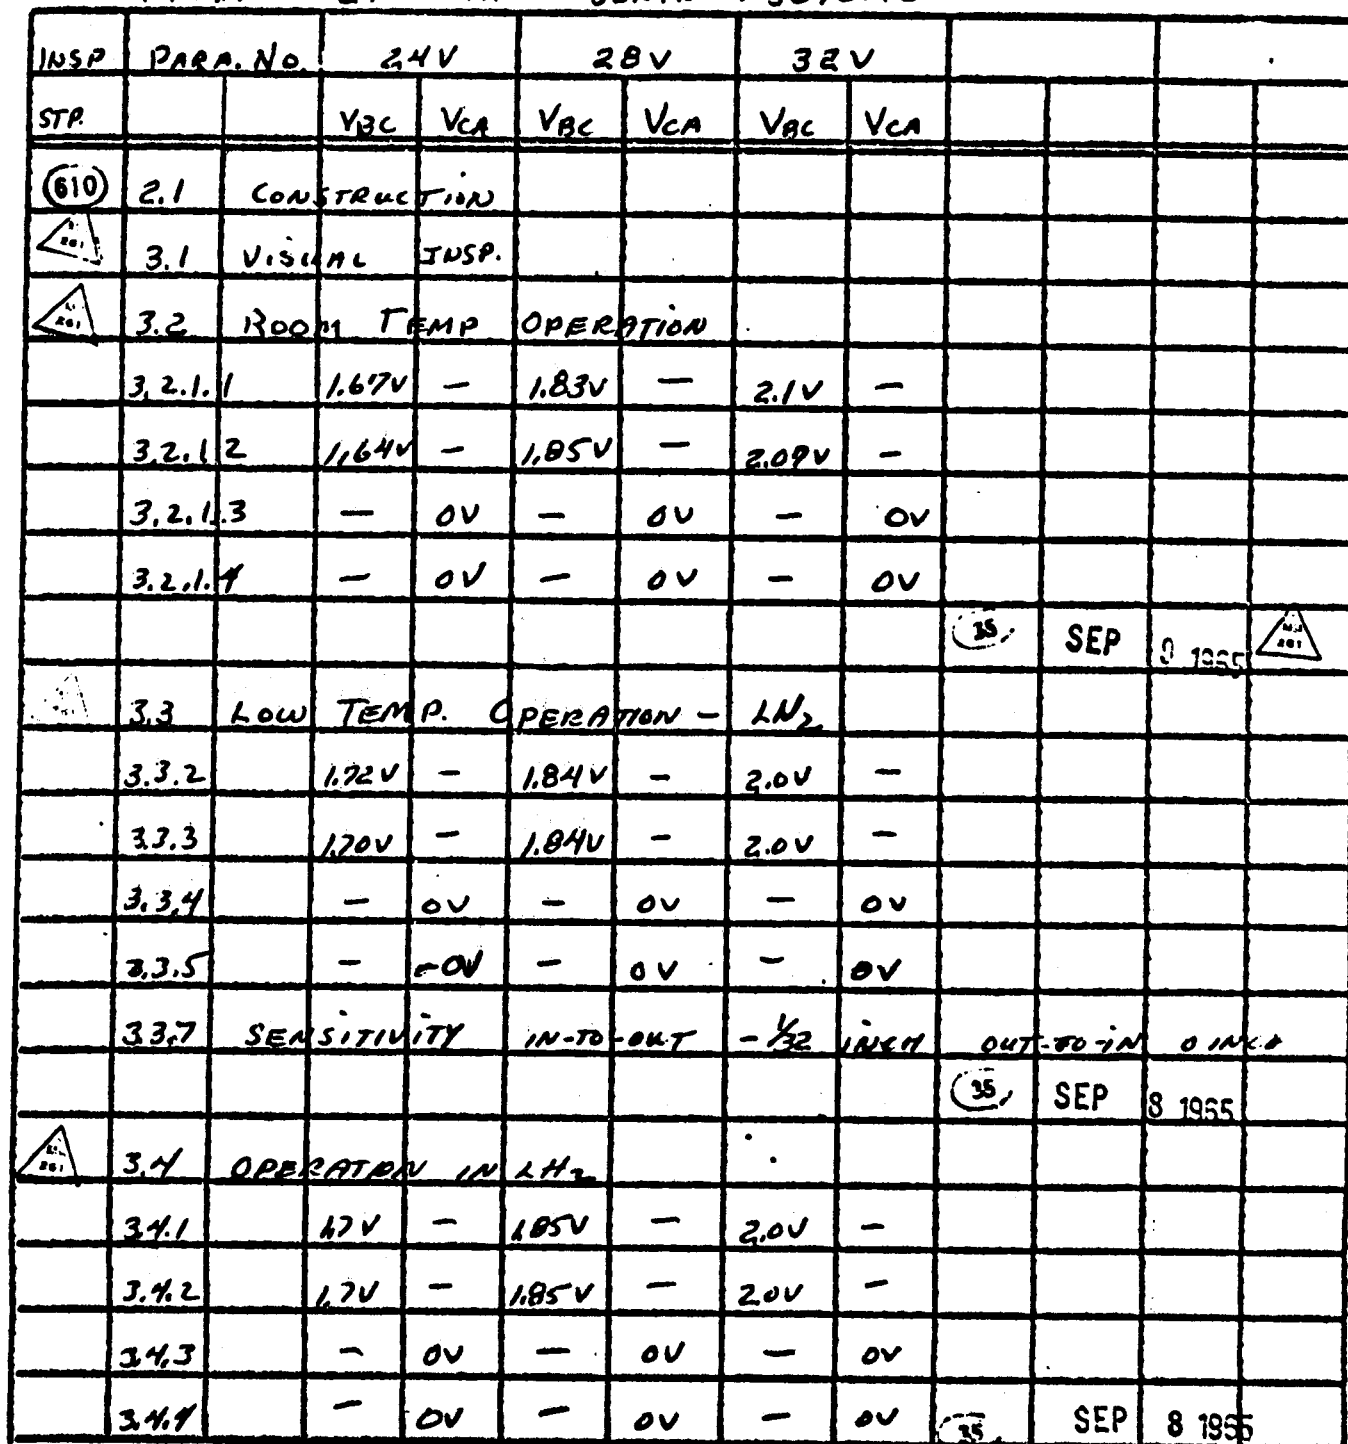 INSP PARA. NO. 24V 28V 32V
STP. VBC VCA VBC VCA VBC VCA
610 2.1 CONSTRUCTION
261 3.1 VISUAL INSP.
261 3.2 ROOM TEMP OPERATION
3.2.1.1 1.67V - 1.83V - 2.1V -
3.2.1.2 1.64V - 1.85V - 2.09V -
3.2.1.3 - 0V - 0V - 0V
3.2.1.4 - 0V - 0V - 0V
35 SEP 1965 261
3.3 LOW TEMP. OPERATION - LN2
3.3.2 1.72V - 1.84V - 2.0V -
3.3.3 1.70V - 1.84V - 2.0V -
3.3.4 - 0V - 0V - 0V
3.3.5 - -0V - 0V - 0V
3.3.7 SENSITIVITY IN-TO-OUT - 1/32 INCH OUT-TO-IN 0 INCH
35 SEP 8 1965
261 3.4 OPERATION IN LH2
3.4.1 1.7V - 1.85V - 2.0V -
3.4.2 1.7V - 1.85V - 2.0V -
3.4.3 - 0V - 0V - 0V
3.4.4 - 0V - 0V - 0V 35 SEP 8 1965